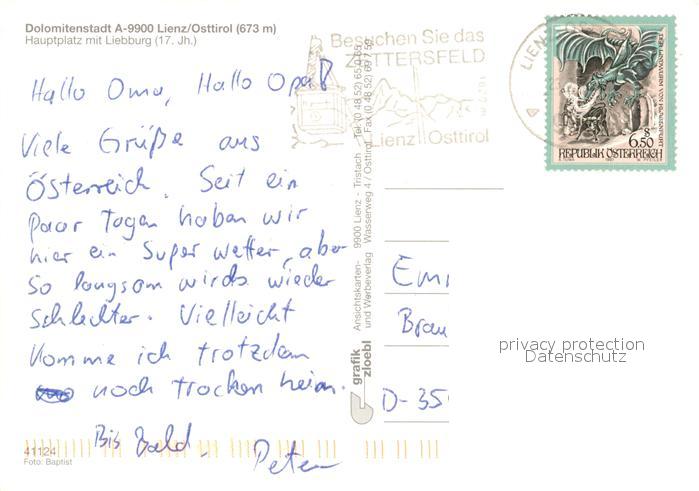 Dolomitenstadt A-9900 Lienz/Osttirol (673 m)
Hauptplatz mit Liebburg (17. Jh.)
Hallo Oma, Hallo Opa!
Viele Grüße aus
Österreich. Seit ein
paar Tagen haben wir
hier ein Super wetter, aber
so langsam wirds wieder
schlechter. Vielleicht
komme ich trotzdem
noch trocken heim.
Bis bald.
Peter
41124
Foto: Baptist
Besuchen Sie das
ZETTERSFELD
Lienz Osttirol
LIENZ
DER LINDWURM VON KLAGENFURT
S
6.50
REPUBLIK ÖSTERREICH
grafik
zloebl
Ansichtskarten-
und Werbeverlag
9900 Lienz - Tristach
Wasserweg 4 / Osttirol
Tel. (0 48 52) 65 0 65
Fax (0 48 52) 69 7 59
Emi
Brau
D-35
privacy protection
Datenschutz